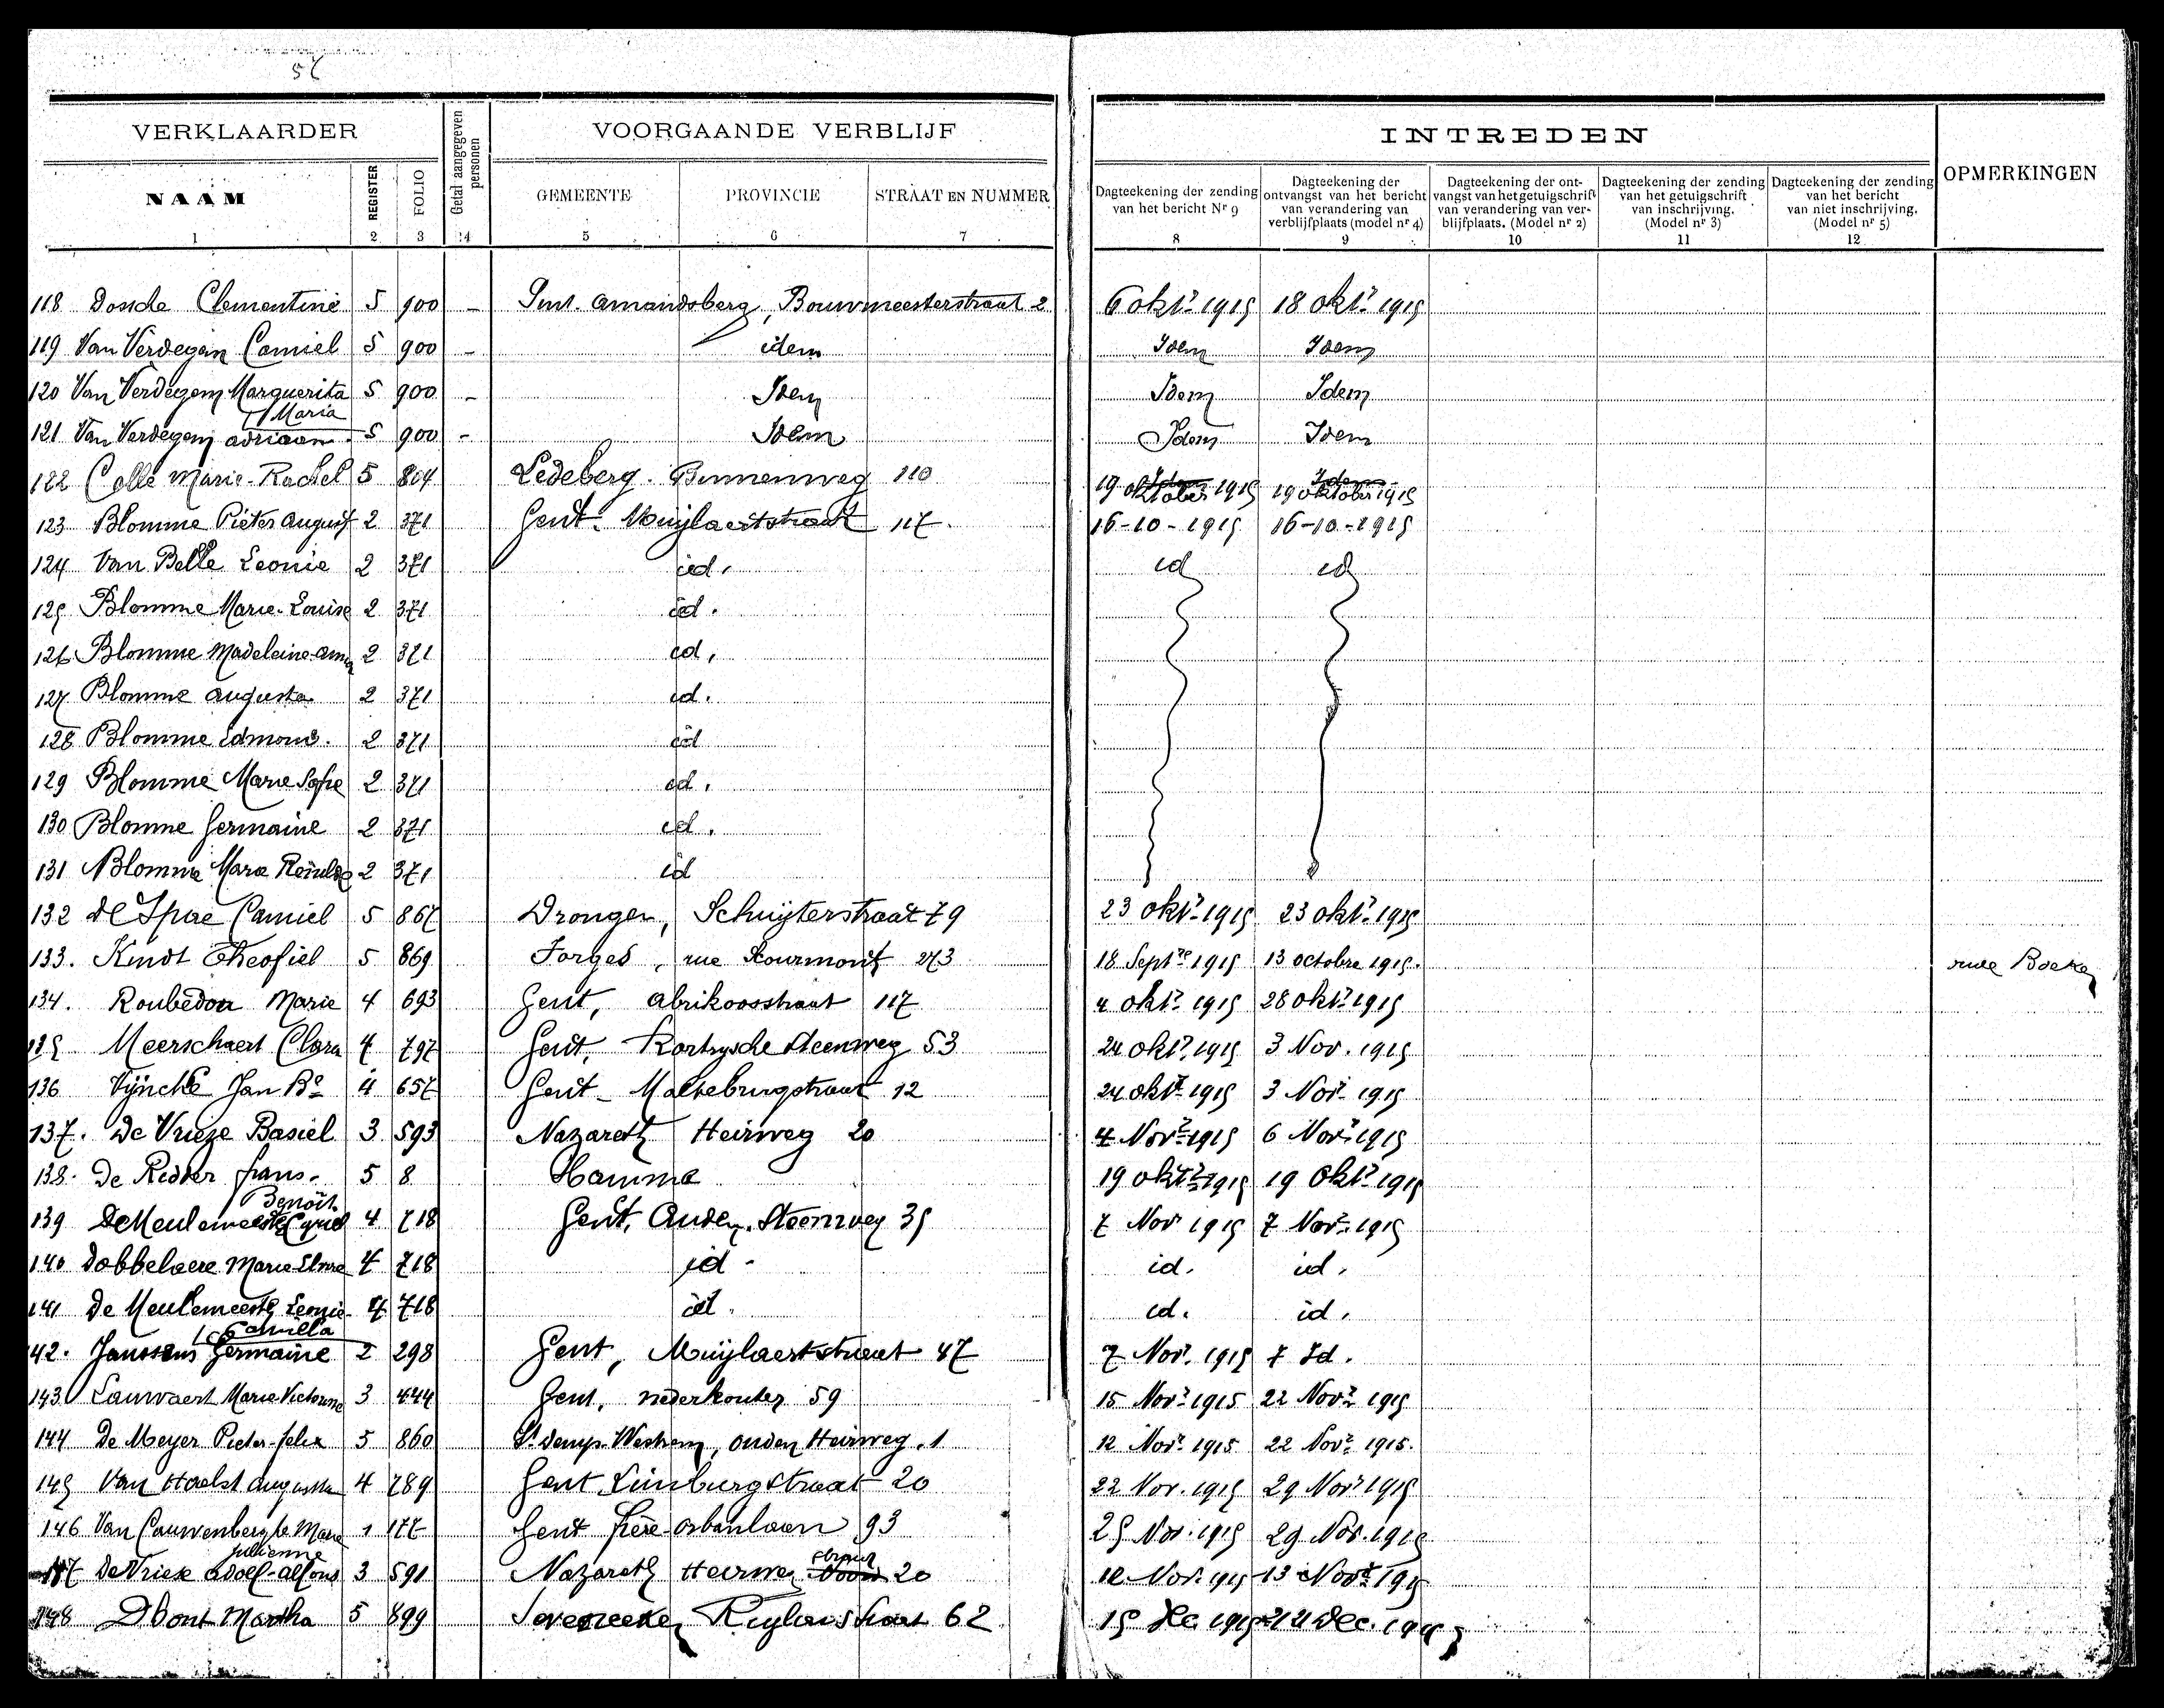 VERKLAARDER
Getal aangegeven personen
VOORGAANDE VERBLIJF
INTREDEN
OPMERKINGEN
NAAM REGISTER FOLIO GEMEENTE PROVINCIE STRAAT EN NUMMER
Dagteekening der zending van het bericht Nr 9
Dagteekening der ontvangst van het bericht van verandering van verblijfplaats (model nr 4)
Dagteekening der ontvangst van het getuigschrift van verandering van verblijfplaats. (Model nr 2)
Dagteekening der zending van het getuigschrift van inschrijving. (Model nr 3)
Dagteekening der zending van het bericht van niet inschrijving. (Model nr 5)
1 2 3 4 5 6 7 8 9 10 11 12
118 Clementine 5 900 - Sint. Amandsberg, Bouwmeesterstraat 2 6 okt. 1915 18 okt. 1915
119 Van Verdegem Camiel 5 900 - idem Idem Idem
120 Van Verdegem Marguerita 5 900 - Idem Idem Idem
Maria
121 Van Verdegem adriaan 5 900 - Idem Idem Idem
122 Colle Marie-Rachel 5 804 Ledeberg. Binnenweg 110 19 oktober 1915 19 oktober 1915
123 Blomme Pieter August 2 371 Gent. Muijlaertstraat 117. 16-10-1915 16-10-1915
124 Van Belle Leonie 2 371 id. id id
125 Blomme Marie-Louise 2 371 id.
126 Blomme Madeleine-Anna 2 371 id.
127 Blomme Augusta 2 371 id.
128 Blomme Edmond. 2 371 id
129 Blomme Marie Sofie 2 371 id.
130 Blomme Germaine 2 371 id.
131 Blomme Marie 2 371 id
132 De Spae Camiel 5 867 Drongen, Schuijterstraat 79 23 okt. 1915 23 okt. 1915
133. Kindt Theofiel 5 869 Forges, rue 273 18 Septre 1915 13 octobre 1915. rue
134. Roubedou Marie 4 693 Gent, Abrikoosstraat 117 4 okt. 1915 28 okt. 1915
135 Meerschaert Clara 4 797 Gent, Kortrijsche steenweg 53 24 okt. 1915 3 Nov. 1915
136 Vijncke Jan Bte 4 657 Gent - Maltebrugstraat 12 24 okt. 1915 3 Nov. 1915
137. De Vrieze Basiel 3 593 Nazareth Heirweg 20 4 Nov. 1915 6 Nov. 1915
138. De Ridder frans. 5 8 Hamme 19 okt. 1915 19 okt. 1915
Benoit
139 De Meulemeester Cyriel 4 718 Gent, Auden. Steenweg 35 7 Nov 1915 7 Nov. 1915
140 Dobbelaere Marie Elvire 4 718 id. id. id.
141 De Meulemeester Leonie 4 718 id. id. id.
Camilla
142. Janssens Germaine 2 298 Gent, Muijlaertstraat 47 7 Nov. 1915 7 Id.
143 Lauwaert Marie Victorine 3 444 Gent, nederkouter 59 15 Nov. 1915 22 Nov. 1915
144 De Meyer Pieter-felix 5 860 St denys-Westrem, ouden Heirweg, 1 12 Nov. 1915 22 Nov. 1915.
145 Van Haelst Augusta 4 789 Gent Limburgstraat 20 22 Nov. 1915 29 Nov. 1915
146 Van Cauwenberghe Marie 1 177 Gent frère-orbanlaan 93 25 Nov. 1915 29 Nov. 1915
Julienne
147 De Vriese Adolf-Alfons 3 591 Nazareth Heirweg straat 20 12 Nov. 1915 13 Nov. 1915
148 Dhont Martha 5 899 Severeeke, straat 62 15 dec 1915 21 dec. 1915